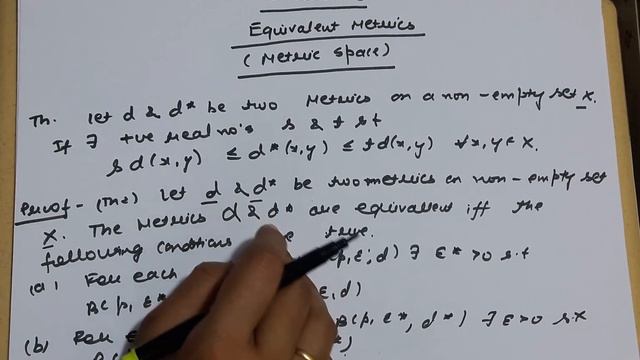 Equivalent Metrics
(Metric Space)
Th. Let d & d* be two Metrics on a non-empty set X.
If ∃ +ve real no's s & t s t
s d(x,y) ≤ d*(x,y) ≤ t d(x,y) ∀ x,y ∈ X.
Proof - (Th 2) Let d & d* be two metrics on non-empty set
X. The Metrics d & d* are equivalent iff the
following conditions true.
(a) For each (p, ε; d) ∃ ε* >0 s.t
B(p, ε* ε, d)
(b) For B(p, ε*, d*) ∃ ε>0 s.t